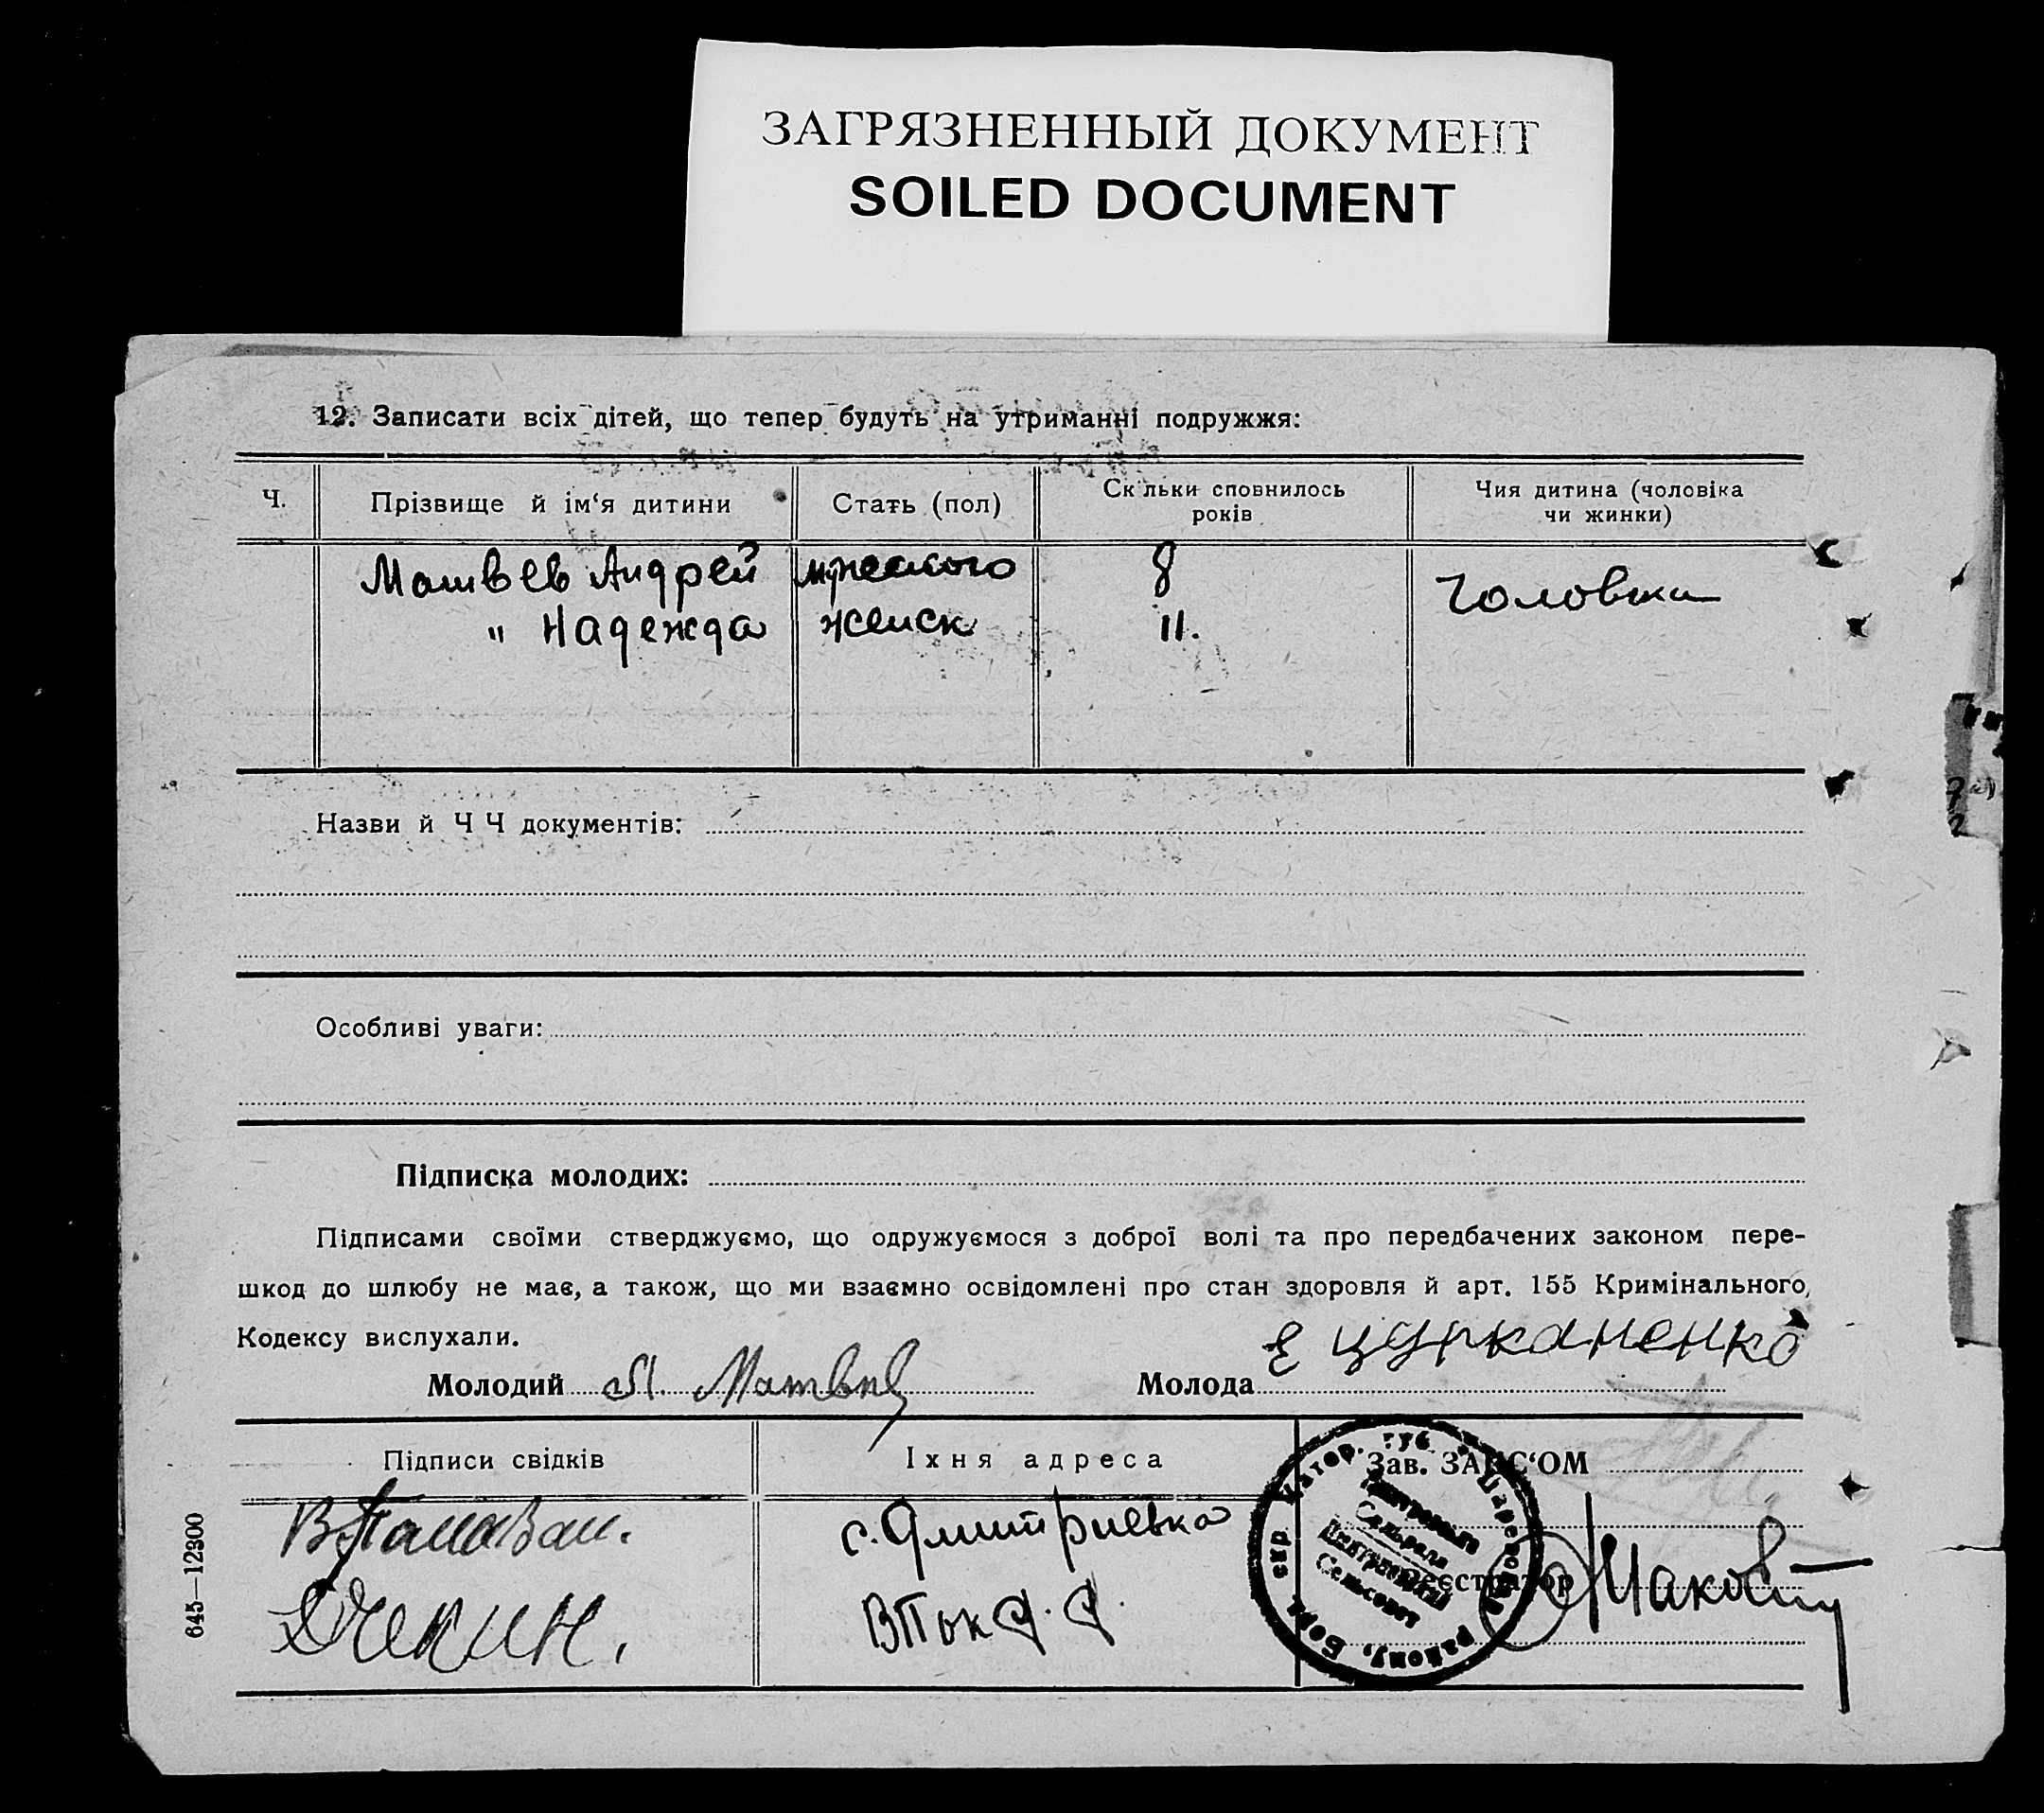 ЗАГРЯЗНЕННЫЙ ДОКУМЕНТ
SOILED DOCUMENT
12. Записати всіх дітей, що тепер будуть на утриманні подружжя:
Ч. Прізвище й ім‘я дитини Стать (пол) Скільки сповнилось років Чия дитина (чоловіка чи жинки)
Матвѣев Андрей мужеского 8 Чоловика
" Надежда женск 11.
Назви й Ч Ч документів:
Особливі уваги:
Підписка молодих:
Підписами своїми стверджуємо, що одружуємося з доброї волі та про передбачених законом пере-
шкод до шлюбу не має, а також, що ми взаємно освідомлені про стан здоровля й арт. 155 Кримінального
Кодексу вислухали.
Е Цурканенко
Молодий Матвѣ Молода
Підписи свідків Іхня адреса Зав. ЗАГС‘ОМ
с. Дмитриевка
Реєстратор
645—12300